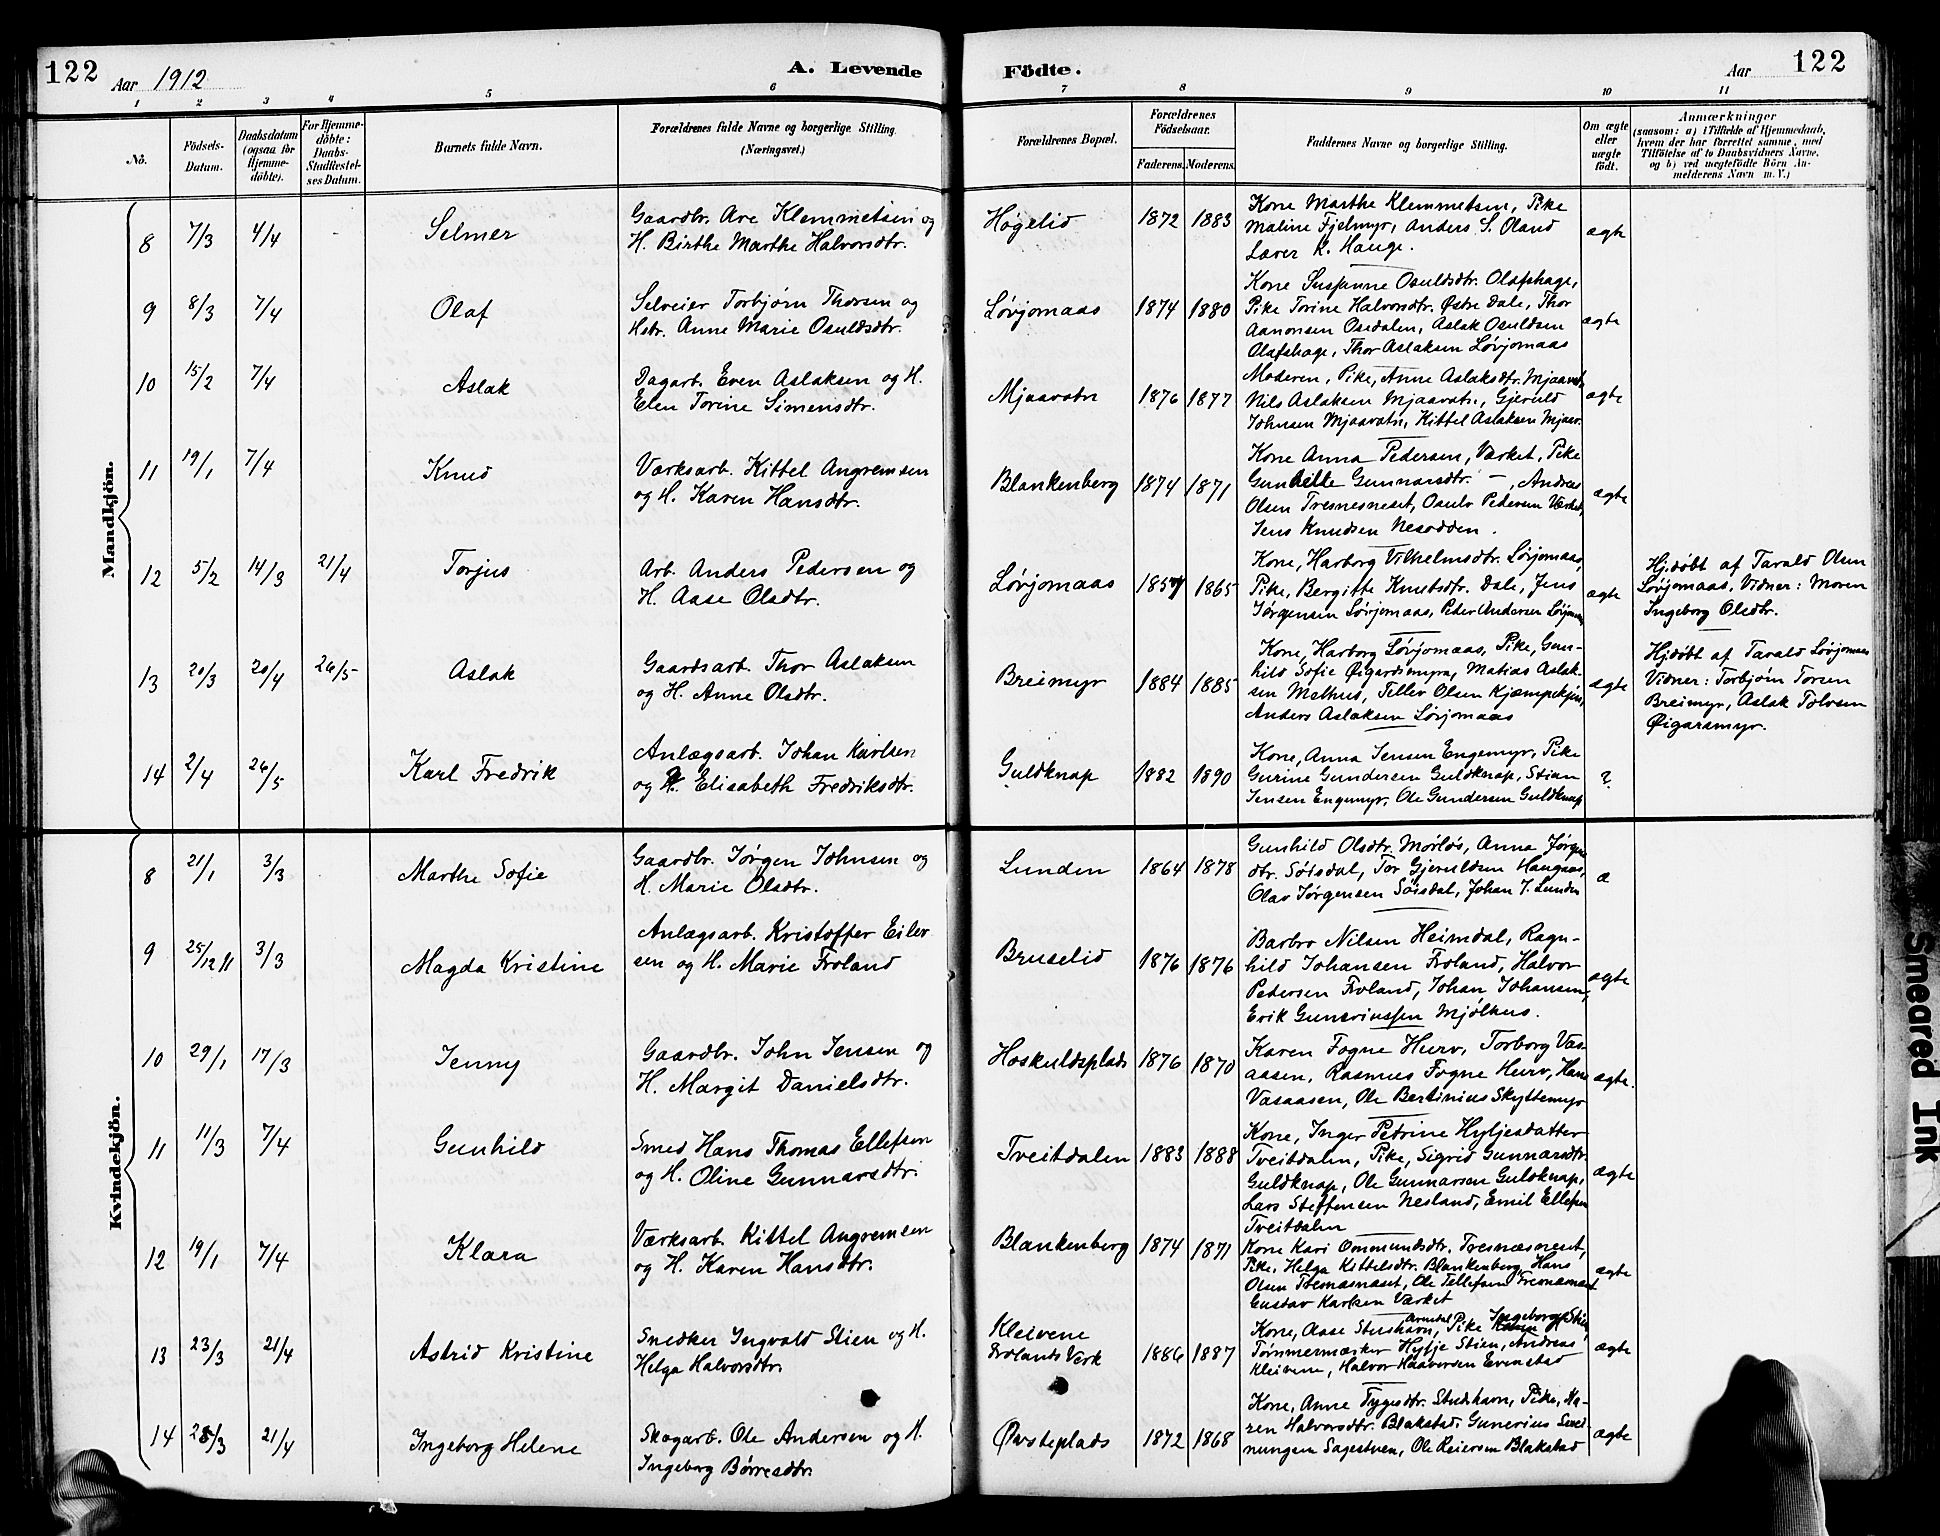 122 Aar 1912 A. Levende Födte. Aar 122
1 2 3 4 5 6 7 8 9 10 11
No.
Födsels-
Datum.
Daabsdatum
(ogsaa for
Hjemme-
döbte).
For Hjemme-
döbte:
Daabs-
Stadfæstel-
ses Datum.
Barnets fulde Navn.
Forældrenes fulde Navne og borgerlige Stilling.
(Næringsvei.)
Forældrenes Bopæl.
Forældrenes
Födselsaar.
Faderens. Moderens.
Faddernes Navne og borgerlige Stilling.
Om ægte
eller
uægte
födt.
Anmærkninger
(saasom: a) i Tilfælde af Hjemmedaab,
hvem der har forrettet samme, med
Tilföielse af to Daabsvidners Navne,
og b) ved uegtefödte Börn An-
melderens Navn m. V.)
Mandkjön.
8 7/3 4/4 - Selmer
Gaardbr. Are Klemmetsen og
H. Birthe Marthe Halvorsdtr.
Høgelid 1872 1883
Kone Marthe Klemmetsen, Pike
Maline Fjelmyr, Anders S. Oland
Lærer K. Hauge.
ægte
9 8/3 7/4 Olaf
Selveier Torbjørn Thorsen og
Hstr. Anne Marie Osuldsdtr.
Løvjomaas 1874 1880
Kone Susanne Osuldsdtr. Olafshage,
Pike Torine Halvorsdtr. Østre Dale, Thor
Aanonsen Osedalen, Aslak Osuldsen
Olafshage, Thor Aslaksen Løvjomaas
ægte
10 15/2 7/4 Aslak
Dagarb. Even Aslaksen og H.
Elen Torine Simensdtr.
Mjaavatn 1876 1877
Moderen, Pike, Anne Aslaksdtr. Mjaavatn,
Nils Aslaksen Mjaavatn, Gjeruld
Johnsen Mjaavatn, Kittel Aslaksen Mjaav.
ægte
11 19/1 7/4 Knud
Værksarb. Kittel Angremsen
og H. Karen Hansdtr.
Blankenberg 1874 1871
Kone Anna Pedersen, Værket, Pike
Gunhille Gunnarsdtr. -, Andreas
Olsen Tresnesneset, Osulv Pedersen Værket,
Jens Knudsen Nesodden.
ægte
12 5/2 14/3 21/4 Torjus
Arb. Anders Pedersen og
H. Aase Olsdtr.
Løvjomaas 1857 1865
Kone, Harborg Vilhelmsdtr. Løvjomaas,
Pike, Bergitte Knutsdtr. Dale, Jens
Jørgensen Løvjomaas, Peder Andersen Løvjomaas
ægte
Hj.døbt af Tarald Olsen
Løvjomaas, Vidner: Moren
Ingeborg Olsdtr.
13 20/3 20/4 26/5 Aslak
Gaardsarb. Thor Aslaksen
og H. Anne Olsdtr.
Breimyr 1884 1885
Kone, Harborg Løvjomaas, Pike, Gun-
hild Sofie Øigardsmyra, Matias Aslak-
sen Methus, Tellev Olsen Kjæmpekjen,
Anders Aslaksen Løvjomaas
ægte
Hjdøbt af Tarald Løvjomaas
Vidner: Torbjørn Torsen
Breimyr, Aslak Tolvsen
Øigarsmyr.
14 2/4 26/5 Karl Fredrik
Anlægsarb. Johan Karlsen
og H. Elisabeth Fredriksdtr.
Guldknap 1882 1890
Kone, Anna Jensen Engemyr, Pike
Gurine Gundersen Guldknap, Stian
Jensen Engemyr, Ole Gundersen Guldknap
?
Kvindekjön.
8 21/1 3/3 Marthe Sofie
Gaardbr. Jørgen Johnsen og
H. Marie Olsdtr.
Lunden 1864 1878
Gunhild Olsdtr. Mørløs, Anna Jørgens
dtr. Søisdal, Tor Gjeruldsen Haugaas,
Olav Jørgensen Søisdal, Johan J. Lunden
æ
9 25/12 11 3/3 Magda Kristine
Anlægsarb. Kristoffer Eilev
sen og H. Marie Froland
Bruselid 1876 1876
Barbro Nilsen Heimdal, Ragn-
hild Johansen Froland, Halvor
Pedersen Froland, Johan Johansen,
Erik Gunariussen Mjølhus.
ægte
10 29/1 17/3 Jenny
Gaardbr. John Jensen og
H. Margit Danielsdtr.
Hoskuldsplads 1876 1870
Karen Fogne Hurv, Torborg Vas-
aasen, Rasmus Fogne Hurv, Hans
Vasaasen, Ole Bertinius Skyttemyr
ægte.
11 11/3 7/4 Gunhild
Smed Hans Thomas Ellefsen
og H. Oline Gunnarsdtr.
Tveitdalen 1883 1888
Kone, Inger Petrine Hyljesdatter
Tveitdalen, Pike, Sigrid Gunnarsdtr.
Guldknap, Ole Gunnarsen Guldknap,
Lars Steffensen Nesland, Emil Ellefsen
Tveitdalen
ægte
12 19/1 7/4 Klara
Værksarb. Kittel Angremsen
og H. Karen Hansdtr.
Blankenberg 1874 1871
Kone Kari Ommundsdtr. Tresnæsneset,
Pike, Helga Kittelsdtr. Blankenberg, Hans
Olsen Tresnæsnæset, Ole Tellefsen Tresnæsnæset
Gustav Karlsen Værket
ægte
13 23/3 21/4 Astrid Kristine
Snedker Ingvald Stien og H.
Helga Halvorsdtr.
Kleivene
Frolands Verk 1886 1887
Kone, Aase Stushavn, Arendal, Pike Ingeborg Stien,
Tømmermærker Hylje Stien, Andreas
Kleivene, Halvor Haaversen Evenstad
ægte
14 28/3 21/4 Ingeborg Helene
Skogarb. Ole Andersen og H.
Ingeborg Børresdtr.
Øvsteplads 1872 1868
Kone, Anne Tygesdtr. Studehavn, Pike, Ka-
ren Halvorsdtr. Blakstad, Gunerius Sevel-
nungsen Sagestuen, Ole Reiersen Blakstad
ægte
Smeared Ink